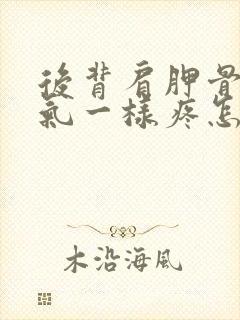 後背肩胛骨
氣一樣疼怎
木沿海風